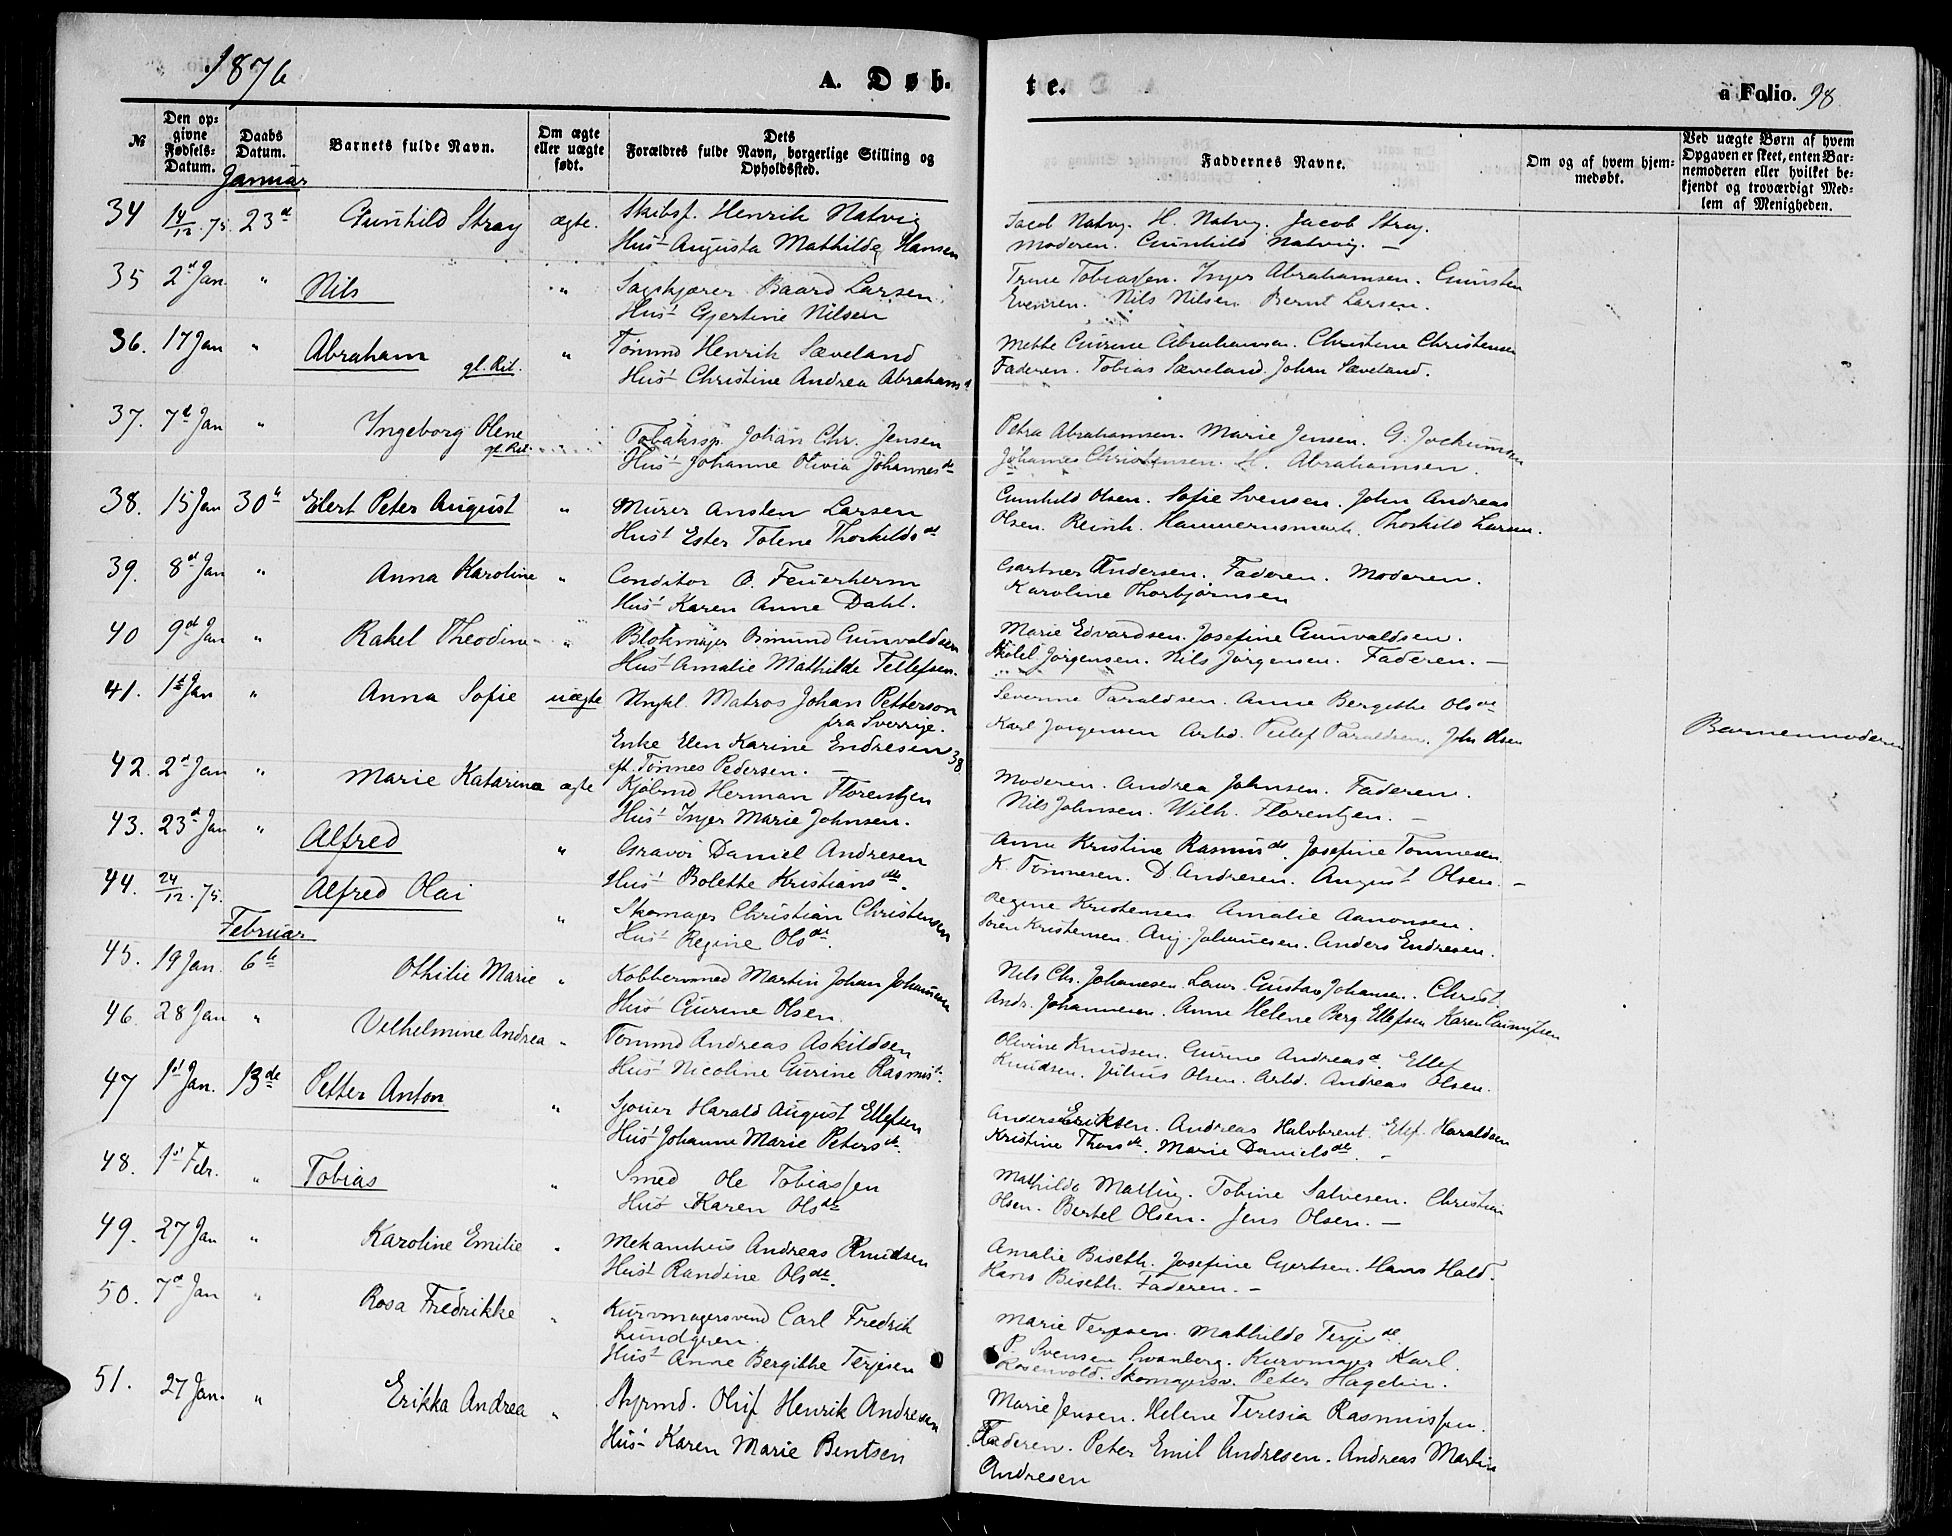 1876
A. Døb-
te.
a Folio. 98.
№
Den op=
givne
Fødsels=
Datum.
Daabs
Datum.
Barnets fulde Navn.
Om ægte
eller uægte
født.
Dets
Forældres fulde Navn, borgerlige Stilling og
Opholdssted.
Faddernes Navne.
Om og af hvem hjem=
medøbt.
Ved uægte Børn af hvem
Opgaven er skeet, enten Bar=
nemoderen eller hvilket be=
kjendt og troværdigt Med=
lem af Menigheden.
Januar
34 14/12.75. 23d Gunhild Stray ægte. Skibsf. Henrik Natvig
Hust Augusta Mathilde Hansen
Jacob Natvig. H. Natvig. Jacob Stray.
Moderen. Gunhild Natvig. —
35 2d Jan. " Nils " Sagskjærer Baard Larsen.
Hust Gjertine Nilsen
Trine Tobiassen. Inger Abrahamsen. Gunsten
Evensen. Nils Nilsen Bernt Larsen.
36. 17 Jan " Abraham gl. Rit. " Tømmd Henrik Sæveland
Hust Christine Andrea Abrahamsd
Mette Gurine Abrahamsen. Christine Christensen
Faderen. Tobias Sæveland. Johan Sæveland.
37. 7d Jan " Ingeborg Olene gl. Rit. Tobaksp. Johan Chr. Jensen
Hust Johanne Olivia Johannesdr
Petra Abrahamsen. Marie Jensen. G. Jochumsen
Johannes Christensen. M. Abrahamsen.
38. 15 Jan 30te Eilert Peter August " Murer Ansten Larsen
Hust Ester Tolene Thorkildsdr
Gunhild Olsen. Sofie Svensen. John Andreas
Olsen. Reinh. Hammernsmark. Thorkild Larsen.
39. 8d Jan " Anna Karoline " Conditor O. Feuerherm
Hust Karen Anne Dahl.
Gartner Andersen. Faderen. Moderen.
Karoline Thorbjørnsen
40 9d Jan " Rakel Theodine " Blokmager Osmund Gunvaldsen
Hust Amalie Mathilde Tellefsen.
Marie Edvardsen. Josefine Gunvaldsen.
Jørgensen. Nils Jørgensen. Faderen. —
41. 1st Jan " Anna Sofie uægte Ungkl. Matros Johan Petterson
fra Sverrige.
Enke Elen Karine Endresen 38
ef. Tønnes Pedersen. —
Severine Taraldsen. Anne Bergethe Olsdr
Karl Jørgensen Arbd. Tellef Taraldsen. Johs Olsen
Barnemoderen
42. 2d Jan " Marie Katarina ægte Kjøbmd Herman Florentzen
Hust Inger Marie Johnsen.
Moderen. Andrea Johnsen. Faderen.
Nils Johnsen. Wilh. Florentzen. —
43. 23d Jan " Alfred " Gravør Daniel Andresen
Hust Bolette Kristiansdtr.
Anne Kristine Rasmusdr. Josefine Tønnesen
K. Tønnesen. D. Andresen. August Olsen. —
44. 24/12.75. Alfred Olai " Skomager Christian Christensen
Hust Regine Olsdr.
Regine Kristensen Amalie Aanonsen.
Søren Kristensen. Aug. Johannesen. Anders Endresen.
Februar
45. 19 Jan. 6te Othilie Marie " Kobbersmed Martin Johan Johannesen
Hust Gurine Olsen.
Nils Chr. Johannesen. Laur. Gustav Johansen. Christ.
Andr. Johannesen. Anne Helene Berg Ellefsen
46. 28 Jan " Vilhelmine Andrea " Tømmd Andreas Askildsen
Hust Nicoline Gurine Rasmust.
Olivine Knudsen. Gurine Andreasd. Ellef
Knudsen. Julius Olsen. Arbd. Andreas Olsen.
47 1st Jan. 13de Petter Anton " Sjouer Harald August Ellefsen
Hust Johanne Marie Petersdr.
Anders Eriksen. Andreas Halvbrent. Elef. Haraldsen
Kristine Thorsdr. Marie Danielsdr. —
48. 1st Febr. " Tobias " Smed Ole Tobiassen
Hust Karen Olsdr
Mathilde Malling. Tobine Salvesen. Christian
Olsen. Bertel Olsen. Jens Olsen. —
49. 27 Jan " Karoline Emilie " Mekanikus Andreas Knudsen
Hust Randine Olsdr.
Amalie Biseth. Josefine Gjertsen. Hans Hald.
Hans Biseth. Faderen. —
50. 7d Jan " Rosa Fredrikke " Kurvmagersvend Carl Fredrik
Lundgren.
Hust Anne Bergitthe Terjesen
Marie Terjesen. Mathilde Terjesdr
P. Svensen Svanberg. Kurvmager Karl.
Rosenvold. Skomagersv. Peter Hagelin.
51. 27 Jan. " Erikka Andrea " Styrmd. Oluf Henrik Andresen
Hust Karen Marie Bentsen
Marie Jensen. Helene Teresia Rasmussen.
Faderen. Peter Emil Andresen. Andreas Martin
Andresen